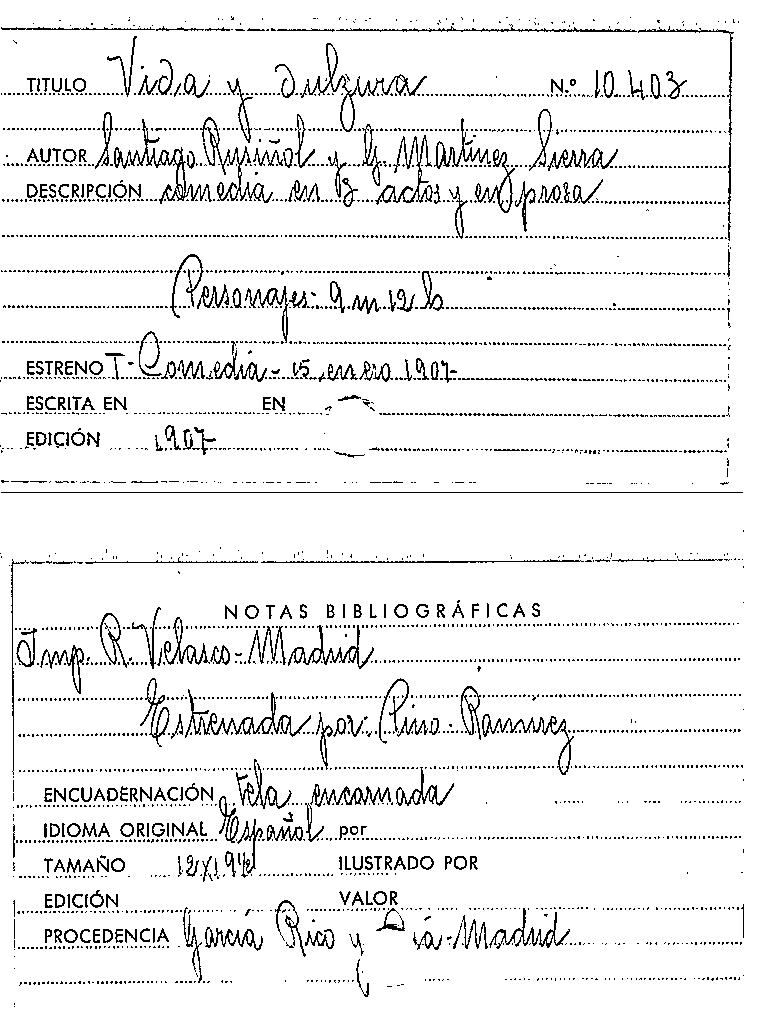 TITULO Vida y dulzura N.º 10.403
AUTOR Santiago Rysiñol y G. Martinez Sierra
DESCRIPCIÓN comedia en 3 actos y en prosa
Personajes- 9 m 12 h
ESTRENO T- Comedia - 15 enero 1907-
ESCRITA EN EN
EDICIÓN 1907-
NOTAS BIBLIOGRÁFICAS
Imp. R. Velasco- Madrid
Estrenada por: Pino- Ramirez
ENCUADERNACIÓN tela encarnada
IDIOMA ORIGINAL Español por
TAMAÑO ILUSTRADO POR
EDICIÓN VALOR
PROCEDENCIA García Rico y -Madrid